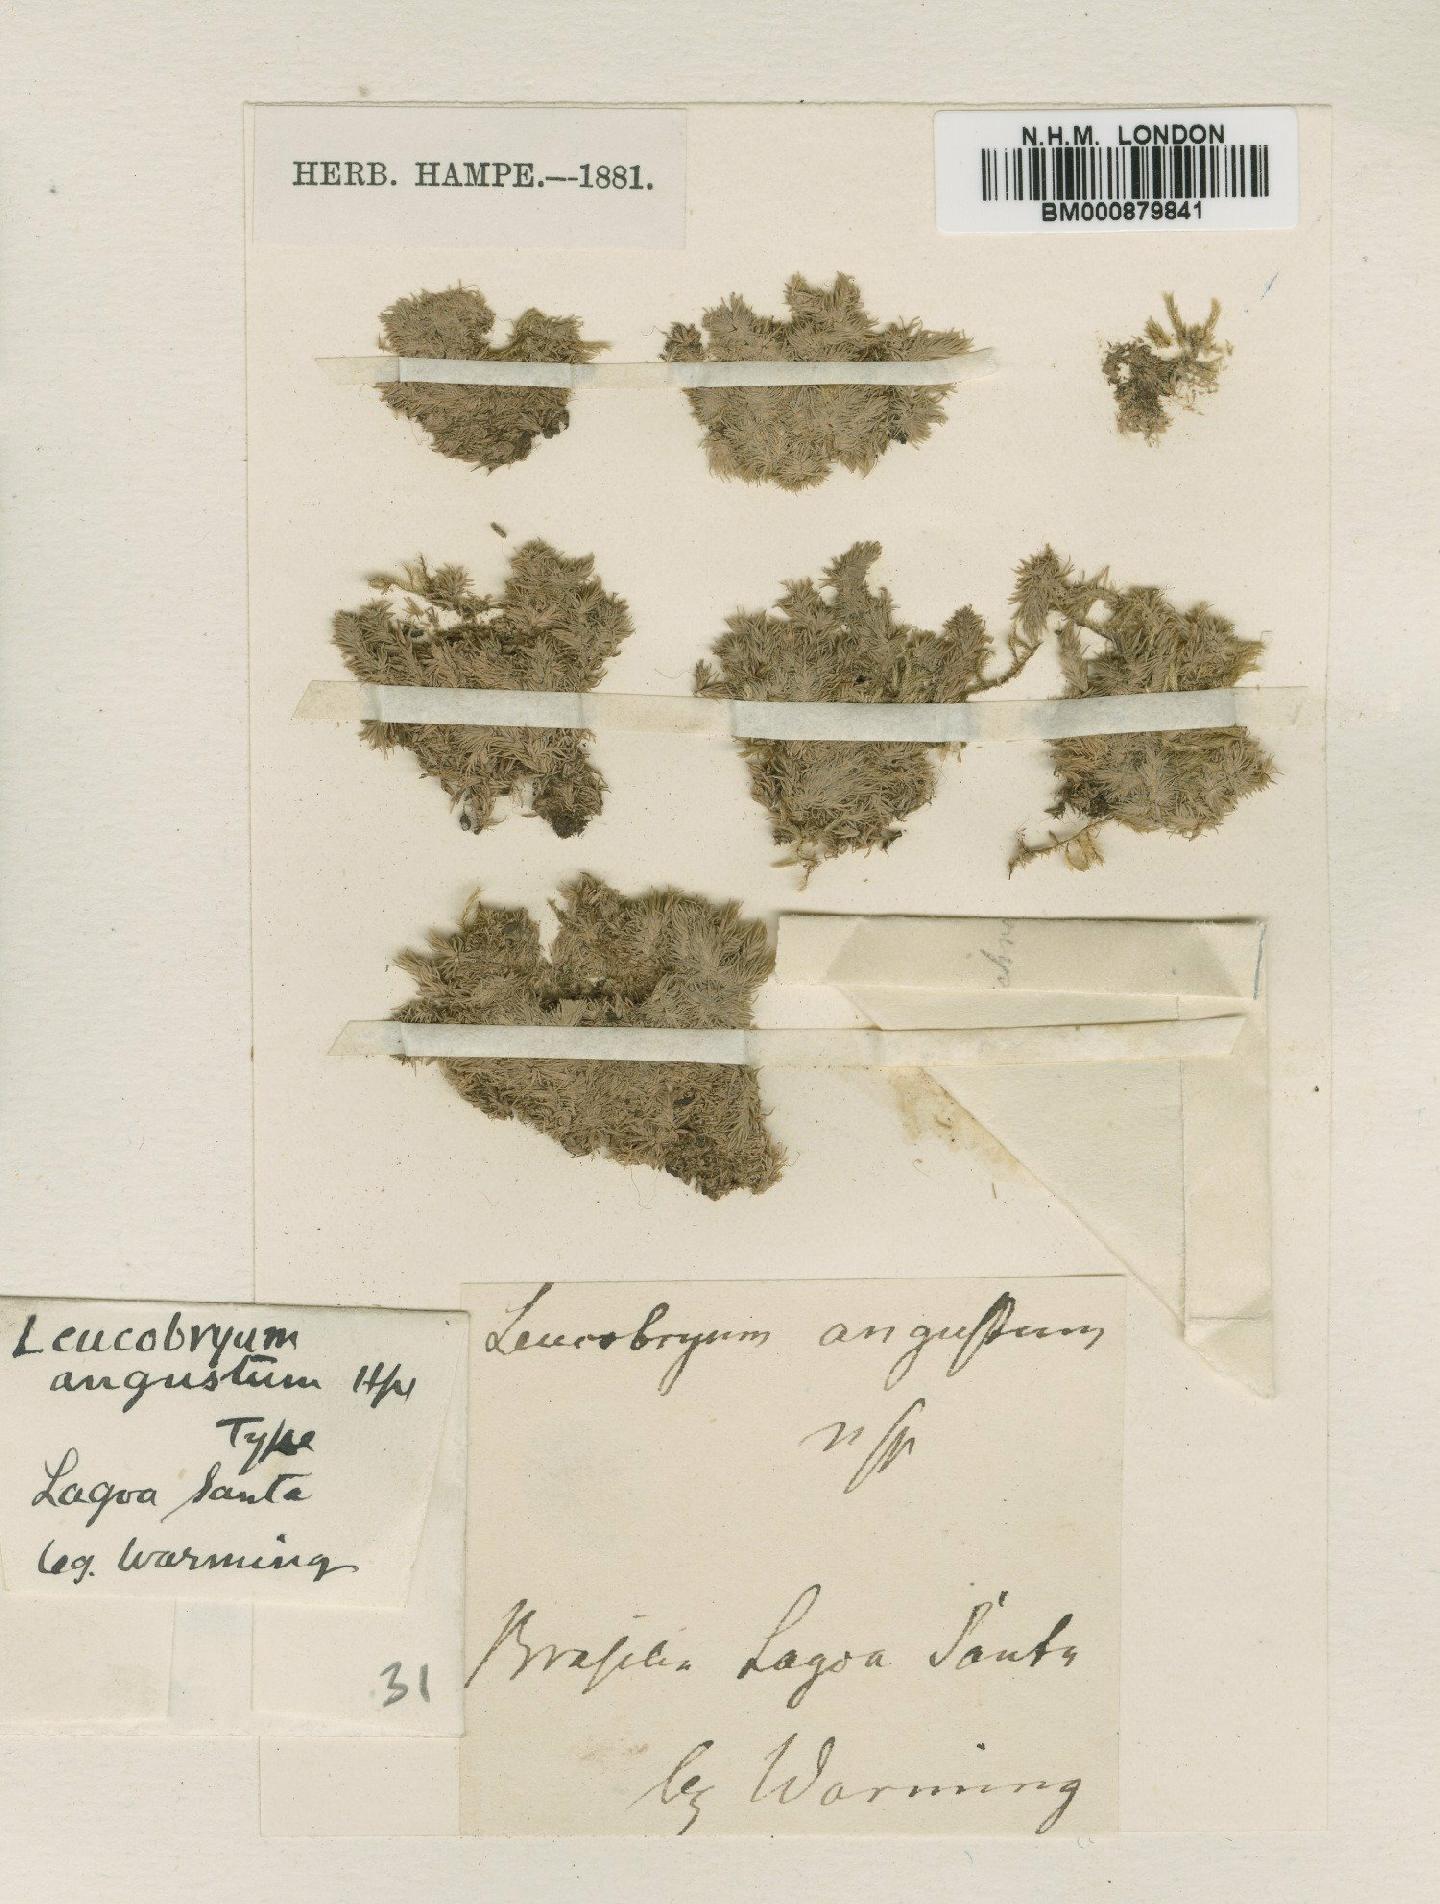 HERB. HAMPE.—1881.
N.H.M. LONDON
BM000879841
Leucobryum
angustum Hpe
Type
Lagoa Santa
leg. Warming
31
Leucobryum angustum
n sp
Brasilia Lagoa Santa
leg Warming